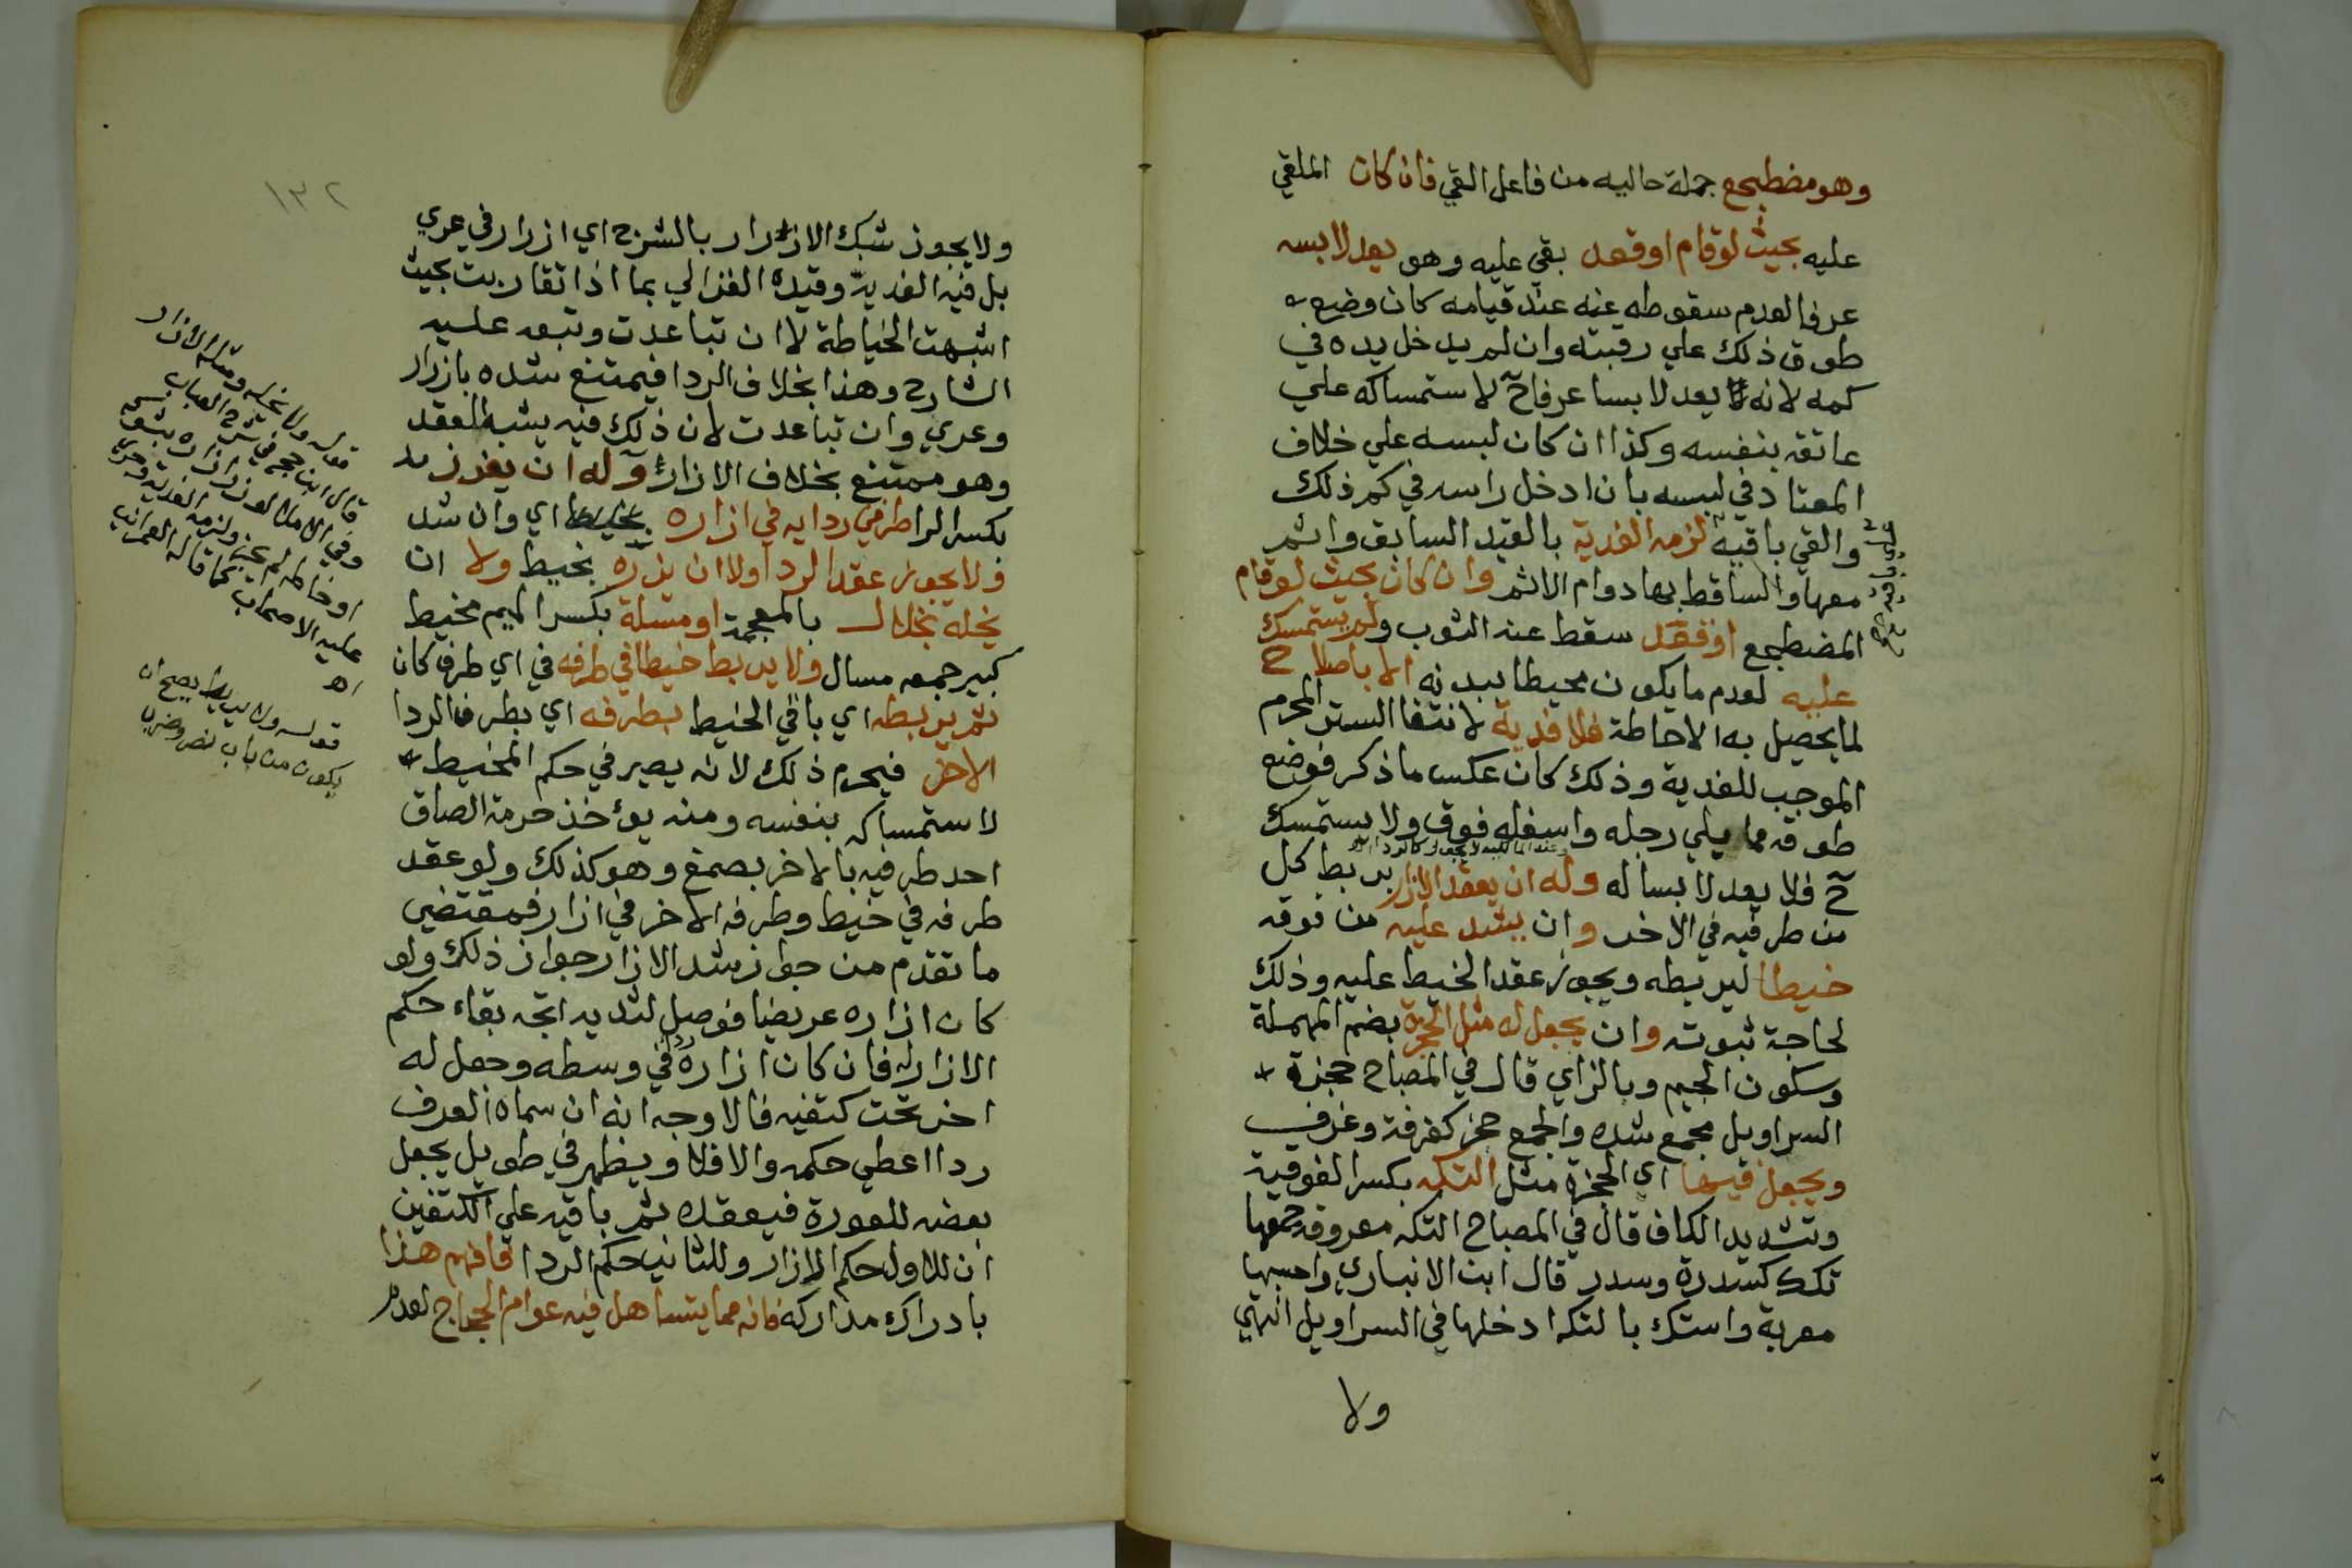 وهو مضطجع جملة حاليه من فاعل القي فان كان الملقي
عليه بحيث لوقام اوقعد بقي عليه وهو يعد لابسه
عرفا لعدم سقوطه عنه عند قيامه كان وضع
طوق ذلك علي رقبته وان لم يدخل يده في
كمه لانه يعد لابسا عرفا ح لاستمساكه علي
عاتقه بنفسه وكذا ان كان لبسه علي خلاف
المعتاد في لبسه بان ادخل راسه في كم ذلك
والقي باقيه لزمه الفدية بالقيد السابق واثم
معها والساقط بها دوام الاثم وان كان بحيث لوقام
المضطجع اوقعد سقط عنه الثوب ولم يستمسك
عليه لعدم ما يكون محيطا ببدنه الا باصلاح
لما يحصل به الاحاطة فلا فدية لانتفا الستر المحرم
الموجب للفدية وذلك كان عكس ما ذكر فوضع
طوقه مما يلي رجله واسفله فوق ولا يستمسك
ح فلا يعد لابسا له وله ان يعقد الازار بربط كل
من طرفيه في الاخر وان يشد عليه من فوقه
خيطا ليربطه ويجوز عقد الخيط عليه وذلك
لحاجة ثبوته وان يجعل له مثل الحجزة بضم المهملة
وسكون الجيم وبالزاي قال في المصباح حجزة
السراويل مجمع شده والجمع حجز كغرفة وغرف
ويجعل فيها اي الحجزة مثل التكه بكسر الفوقية
وتشديد الكاف قال في المصباح التكه معروفه جمعها
تكك كسدرة وسدر قال ابن الانباري واحسبها
معربة واستك بالتكه ادخلها في السراويل انتهي
ولا
١٣٢
ولا يجوز شبك الازار بالشرح اي ازرار في عري
بل فيه الفدية وقيده الغزالي بما اذا تقاربت بحيث
اشبهت الخياطة لا ان تباعدت وتبعه عليه
الشارح وهذا بخلاف الردا فيمتنع شده بازرار
وعري وان تباعدت لان ذلك فيه يشبه العقد
وهو ممتنع بخلاف الازار وله ان يغرز
بكسر الرا طرفي ردايه في ازاره بخيط اي وان شد
ولا يجوز عقد الردا ولا ان يزره بخيط ولا ان
يخله بخلال بالمعجمة او مسلة بكسر الميم مخيط
كبير جمعه مسال ولا يربط خيطا في طرفه في اي طرف كان
ثم يربطه اي باقي الخيط بطرفه اي بطرف الردا
الاخر فيحرم ذلك لانه يصير في حكم المخيط
لاستمساكه بنفسه ومنه يؤخذ حرمة الصاق
احد طرفيه بالاخر بصمغ وهو كذلك ولو عقد
طرفه في خيط وطرفه الاخر في ازار فمقتضي
ما تقدم من جواز شد الازار جواز ذلك ولو
كان ازاره عريضا فوصل لثدييه اتجه بقاء حكم
الازار له فان كان ازاره في وسطه وجعل له
اخر تحت كتفيه فالاوجه انه ان سماه العرف
ردا اعطي حكمه والا فلا ويظهر في طويل يجعل
بعضه للعورة فيعقده ثم باقيه علي الكتفين
ان للاول حكم الازار وللثاني حكم الردا فافهم هذا
بادراك مداركه فانه مما يتساهل فيه عوام الحجاج لعدم
قوله ولا يخله ومثله الازار
قال ابن حجر في شرح العباب
وفي الاملا لو زر ازاره بشوك
او خاطه لم يجز ولزمه الفدية وجري
عليه الاصحاب كما قاله العمراني
اه
قوله ولا يربط يصح ان
يكون من باب نصر وضرب